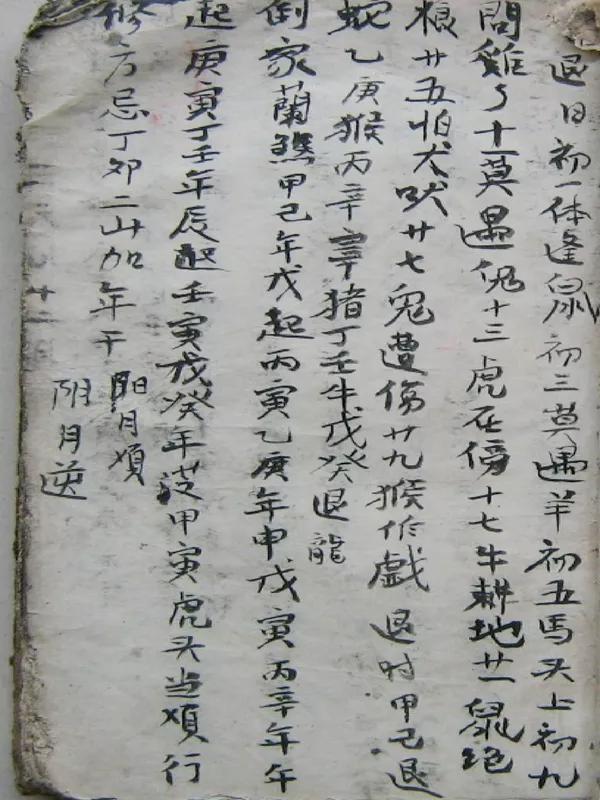 退日初一休逢鼠初三莫遇羊初五馬头上初九
問雞了十一莫遇兔十三虎在傍十七牛耕地廿一鼠絕
粮廿五怕犬吠廿七兔遭傷廿九猴作戯退时甲己退
蛇乙庚猴丙辛豬丁壬牛戊癸退龍
倒家蘭煞甲己年戌起丙寅乙庚年申戊寅丙辛年午
起庚寅丁壬年辰起壬寅戊癸年甲寅虎头当順行
修方忌丁卯二山加年干
陽月順
陰月逆